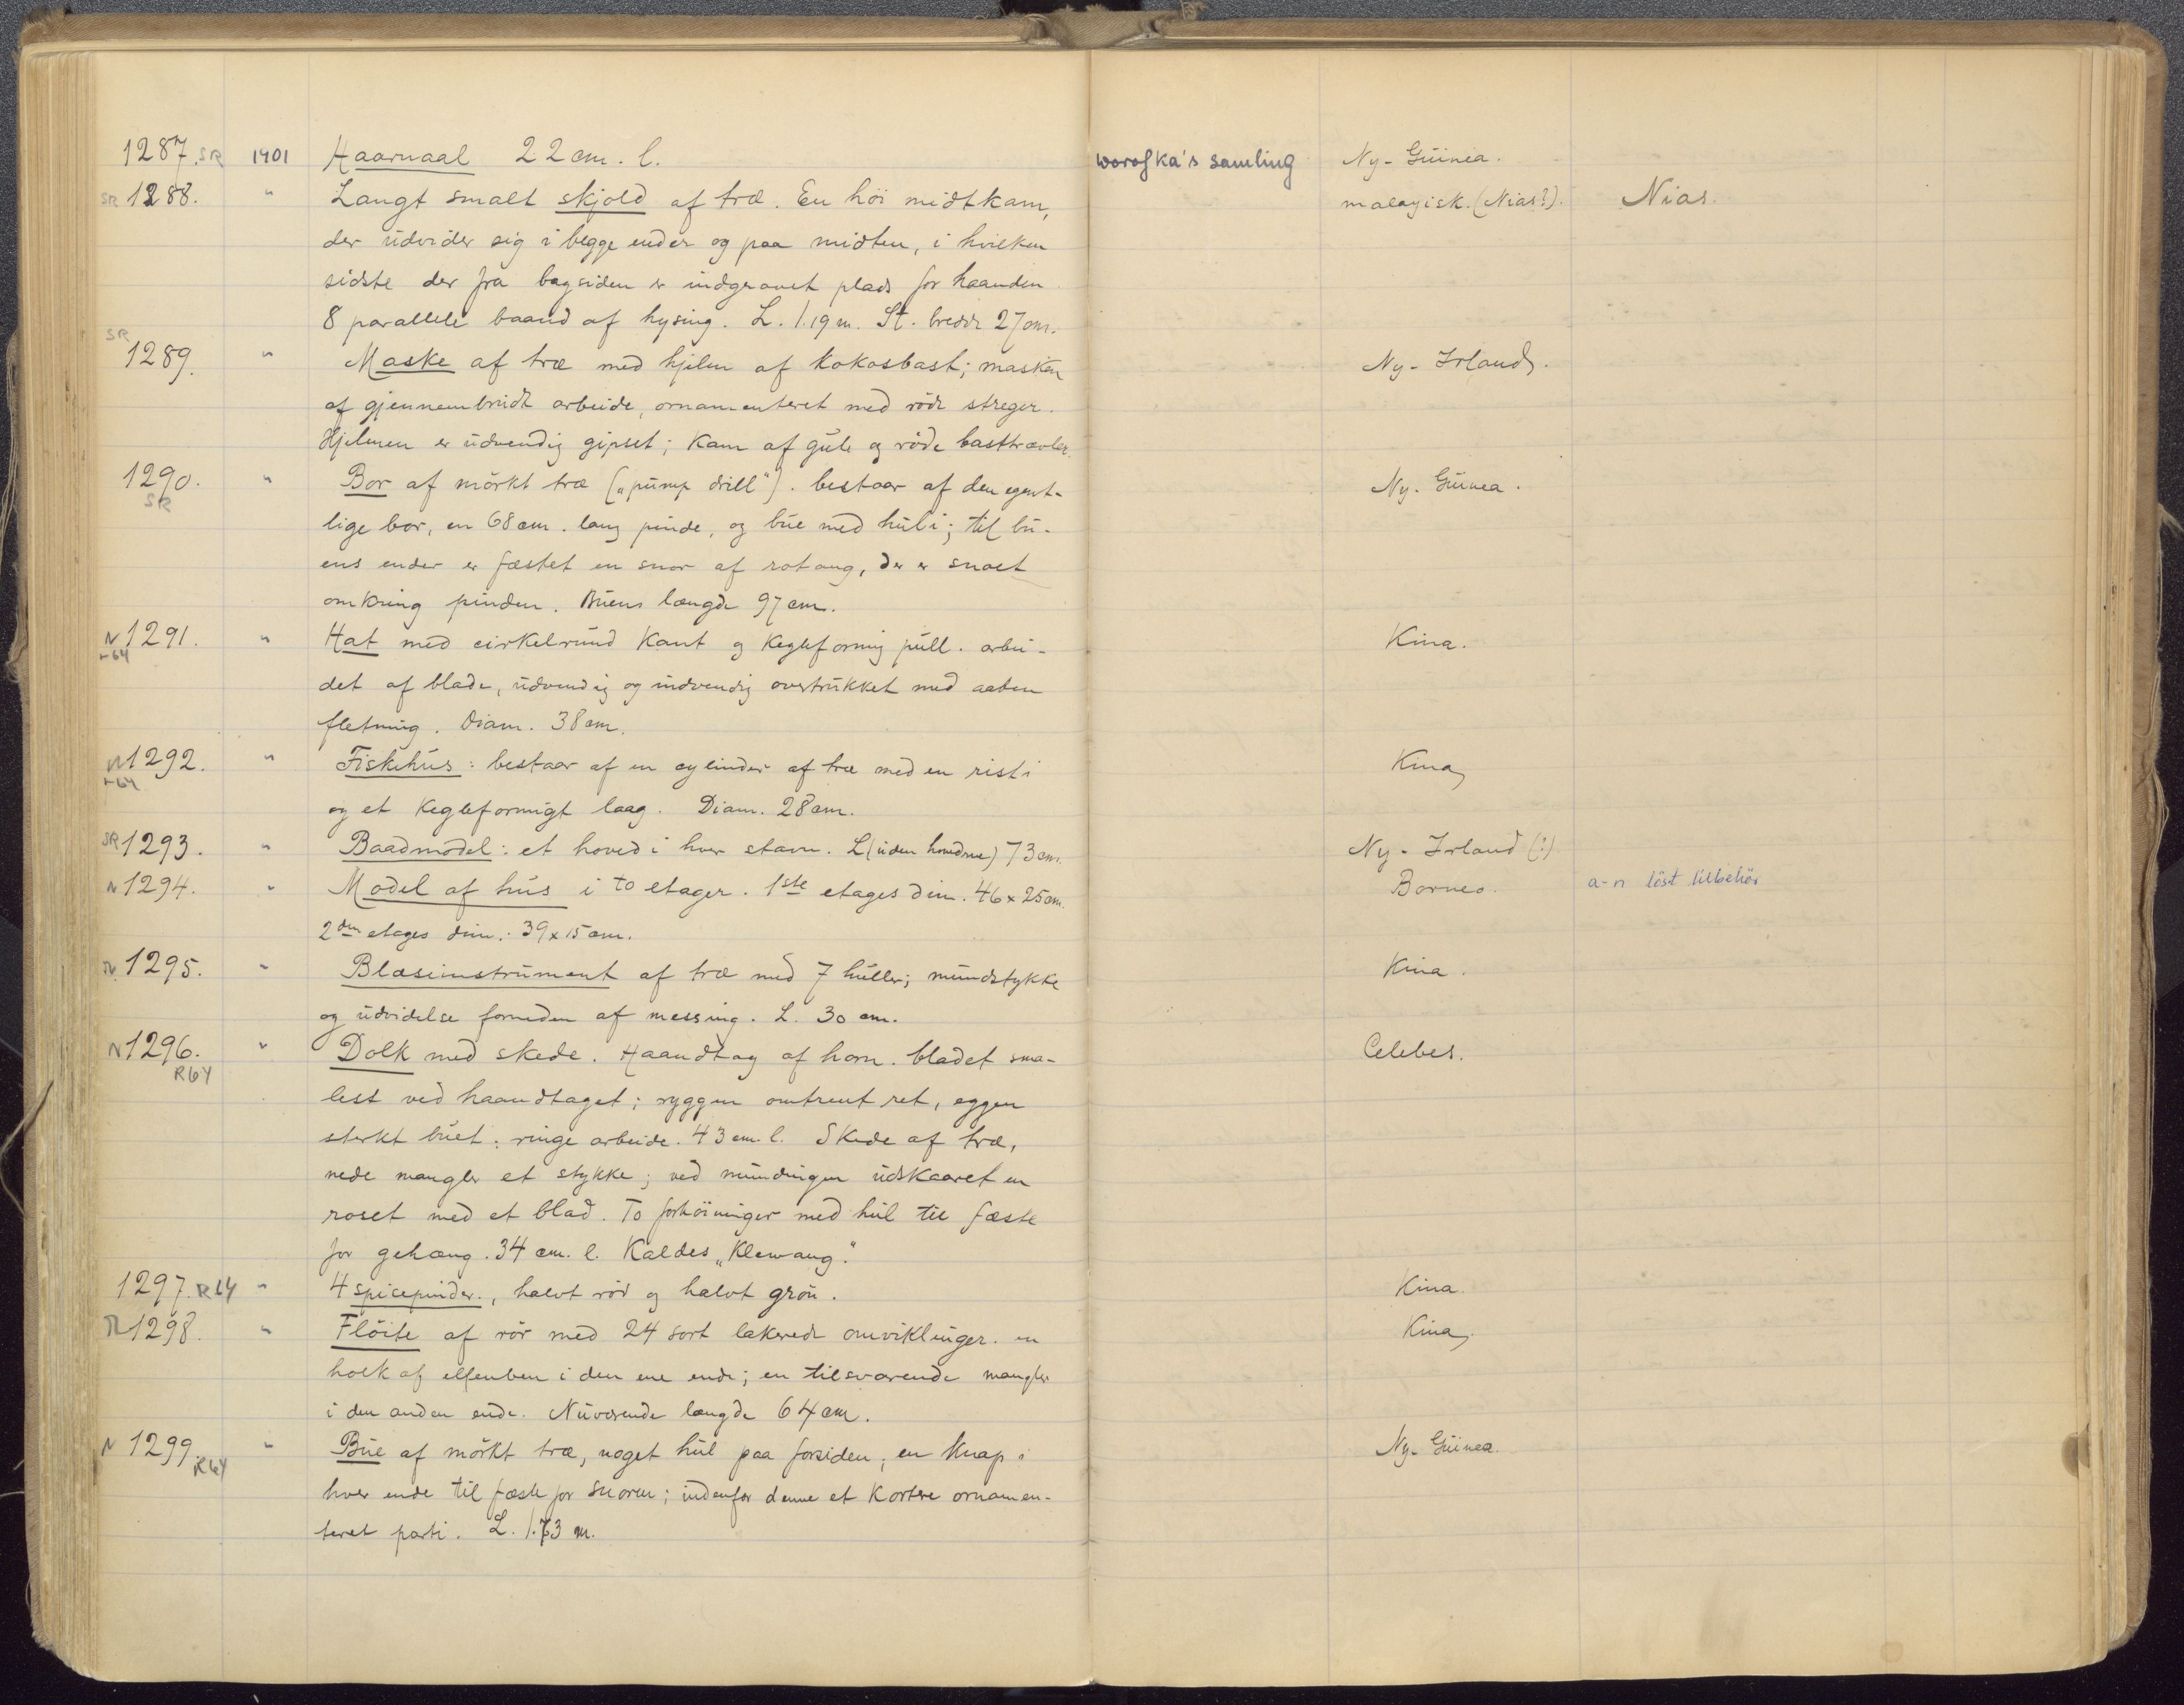 1287. SR 1901 Haarnaal 22 cm. l. Worofka's samling Ny-Guinea.
SR 1288. " Langt smalt skjold af træ. En höi midtkam, malayisk. (Nias?). Nias.
der udvider sig i begge ender og paa midten, i hvilken
sidste der fra bagsiden er indgravet plads for haanden
8 parallele baand af hysing. L. 1.19 m. St. bredde 27 cm.
SR
1289. " Maske af træ med hjelm af kokosbast; masken Ny-Irland.
af gjennembrudt arbeide, ornamenteret med röde streger.
Hjelmen er udvendig gipset; Kam af gule og röde basttrævler.
1290. " Bor af mörkt træ („pump drill"). bestaar af den egent- Ny-Guinea.
SR
lige bor, en 68 cm. lang pinde, og bue med hul i; til bu-
ens ender er fæstet en snor af rotang, der er snoet
omkring pinden. Buens længde 97 cm.
N 1291. " Hat med cirkelrund Kant og Kegleformig pull. arbei- Kina.
-64
det af blade, udvendig og indvendig overtrukket med aaben
fletning. Diam. 38 cm.
N 1292. " Fiskehus: bestaar af en cylinder af træ med en rist i Kina
-64
og et Kegleformigt laag. Diam. 28 cm.
SR 1293. " Baadmodel: et hoved i hver stavn. L (uden hovderne) 73 cm. Ny-Irland (?)
N 1294. " Model af hus i to etager. 1ste etages dim. 46 x 25 cm. Borneo. a-n löst tilbehör
2den etages dim.: 39 x 15 cm.
N 1295. " Blæseinstrument af træ med 7 huller; mundstykke Kina.
og udvidelse forneden af messing. L. 30 cm.
N 1296. " Dolk med skede. Haandtag af horn. bladet sma- Celebes.
R64
lest ved haandtaget; ryggen omtrent ret, eggen
sterkt buet: ringe arbeide. 43 cm. l. Skede af træ,
nede mangler et stykke; ved mundingen udskaaret en
roset med et blad. To forhöininger med hul til fæste
for gehæng. 34 cm. l. Kaldes „Klewang".
1297. R64 " 4 spisepinder., halvt röd og halvt grön. Kina.
N 1298. " Flöite af rör med 24 sort lakerede omviklinger. en Kina.
holk af elfenben i den ene ende; en tilsvarende mangler
i den anden ende. Nuværende længde 64 cm.
N 1299. " Bue af mörkt træ, noget hul paa forsiden; en Knap i Ny-Guinea.
R64
hver ende til fæste for snoren; indenfor denne et kortere ornamen-
teret parti. L. 1.73 m.